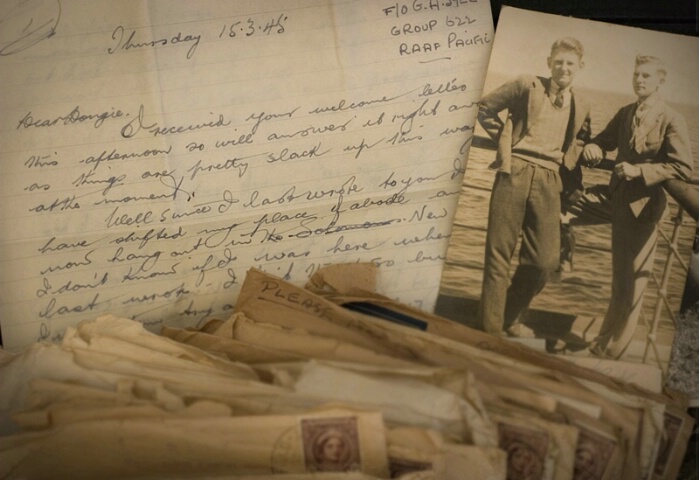 F/O G.A.
GROUP 622
RAAF PACIFIC
Thursday 15.3.45
Dear Dougie.
I received your welcome letter
this afternoon so will answer it right
as things are pretty slack up this way
at the moment.
Well since I last wrote to you I
have shifted my place of abode
now hang out in the Solomons. New
I don't know if I was here when
last wrote. I
PLEASE